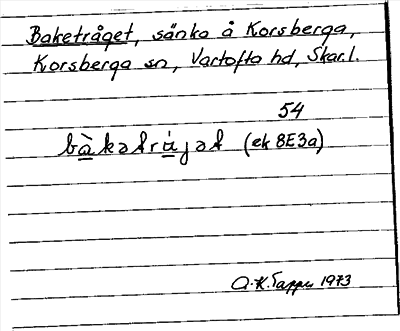 Baketråget, sänka å Korsberga,
Korsberga sn, Vartofta hd, Skar.l.
54
bàkətrájət (ek 8E3a)
1973